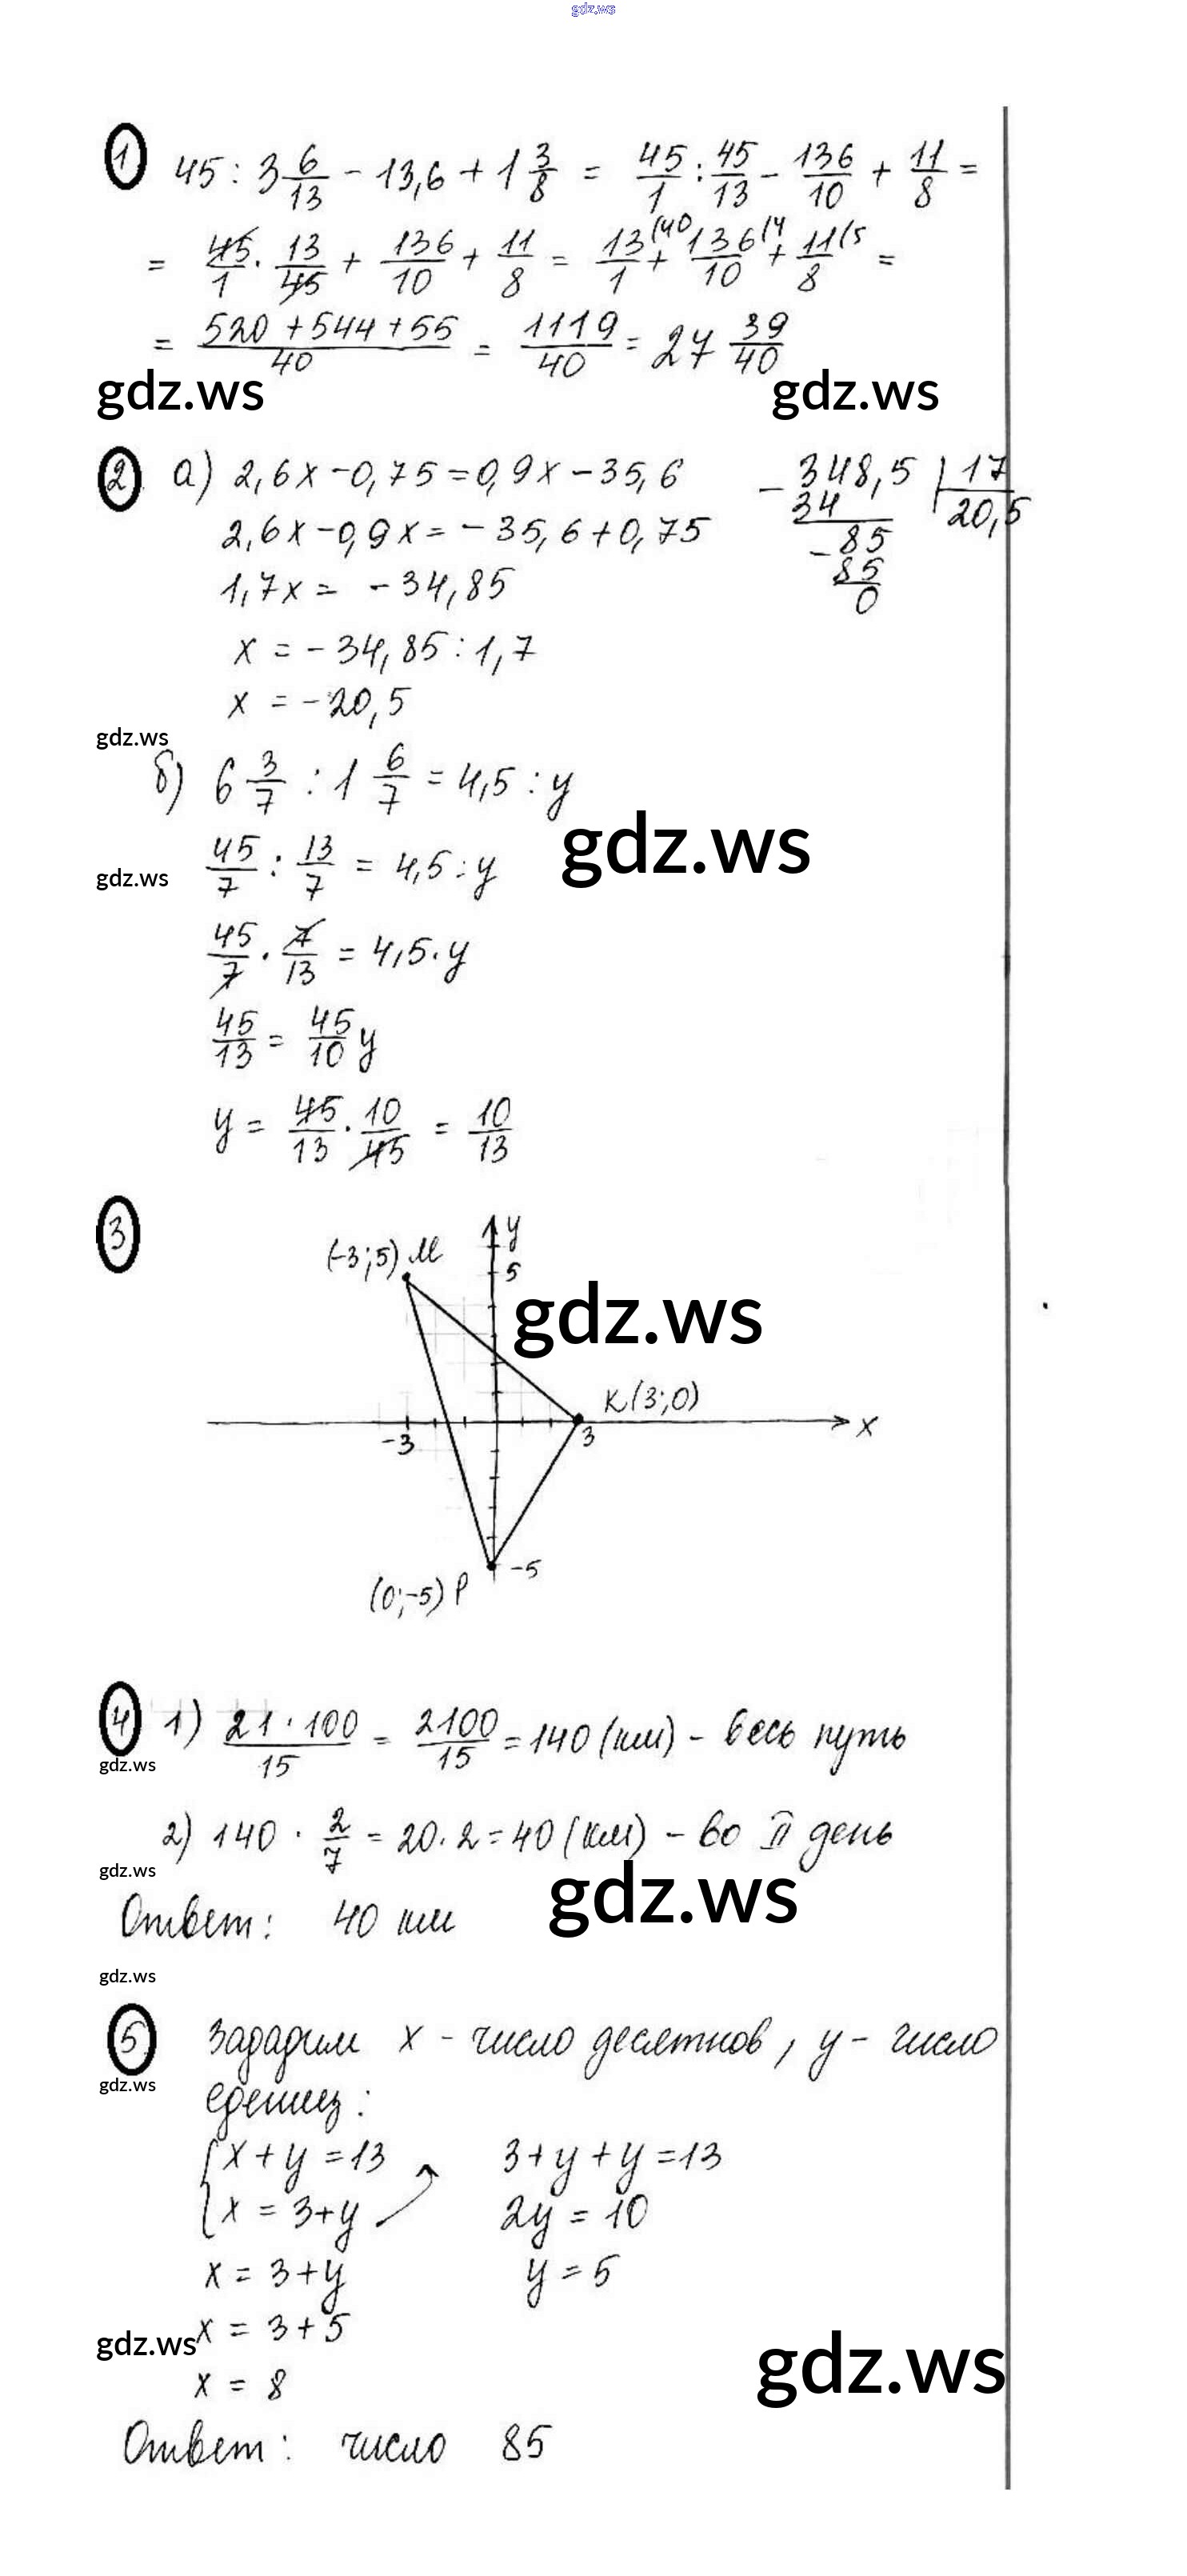 gdz.ws
1 45 : 3 6/13 - 13,6 + 1 3/8 = 45/1 : 45/13 - 136/10 + 11/8 =
= 45/1 · 13/45 + 136/10 + 11/8 = 13/1 (40 + 136/10 (4 + 11/8 (5 =
= 520 + 544 + 55/40 = 1119/40 = 27 39/40
gdz.ws gdz.ws
2 а) 2,6x - 0,75 = 0,9x - 35,6
2,6x - 0,9x = - 35,6 + 0,75
1,7x = - 34,85
x = - 34,85 : 1,7
x = - 20,5
- 348,5 | 17
34 20,5
- 85
85
0
gdz.ws
б) 6 3/7 : 1 6/7 = 4,5 : y
gdz.ws
45/7 : 13/7 = 4,5 : y
gdz.ws
45/7 · 7/13 = 4,5 · y
45/13 = 45/10 y
y = 45/13 · 10/45 = 10/13
3
(-3;5) M y
5
gdz.ws
K(3;0)
-3 3 x
-5
(0;-5) P
4 1) 21 · 100/15 = 2100/15 = 140 (км) - весь путь
gdz.ws
2) 140 · 2/7 = 20 · 2 = 40 (км) - во II день
gdz.ws
gdz.ws
Ответ: 40 км
gdz.ws
5 Зададим x - число десятков, y - число
gdz.ws
единиц:
{ x + y = 13 3 + y + y = 13
x = 3 + y 2y = 10
x = 3 + y y = 5
x = 3 + 5
gdz.ws
gdz.ws
x = 8
Ответ: число 85